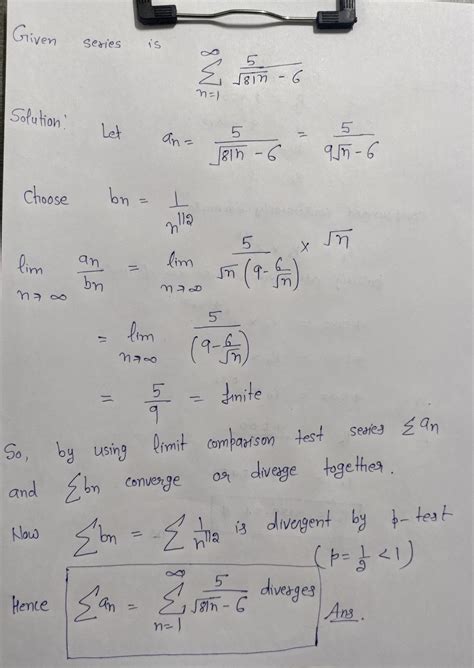 Given series is
∞
∑ 5/(√81n - 6)
n=1
Solution: Let an = 5/(√81n - 6) = 5/(9√n - 6)
Choose bn = 1/n^1/2
lim n→∞ an/bn = lim n→∞ 5/(√n (9 - 6/√n)) × √n
= lim n→∞ 5/(9 - 6/√n)
= 5/9 = finite
So, by using limit comparison test series ∑an
and ∑bn converge or diverge together.
Now ∑bn = ∑ 1/n^1/2 is divergent by p-test
(p = 1/2 < 1)
Hence ∑an = ∞∑n=1 5/(√81n - 6) diverges Ans.